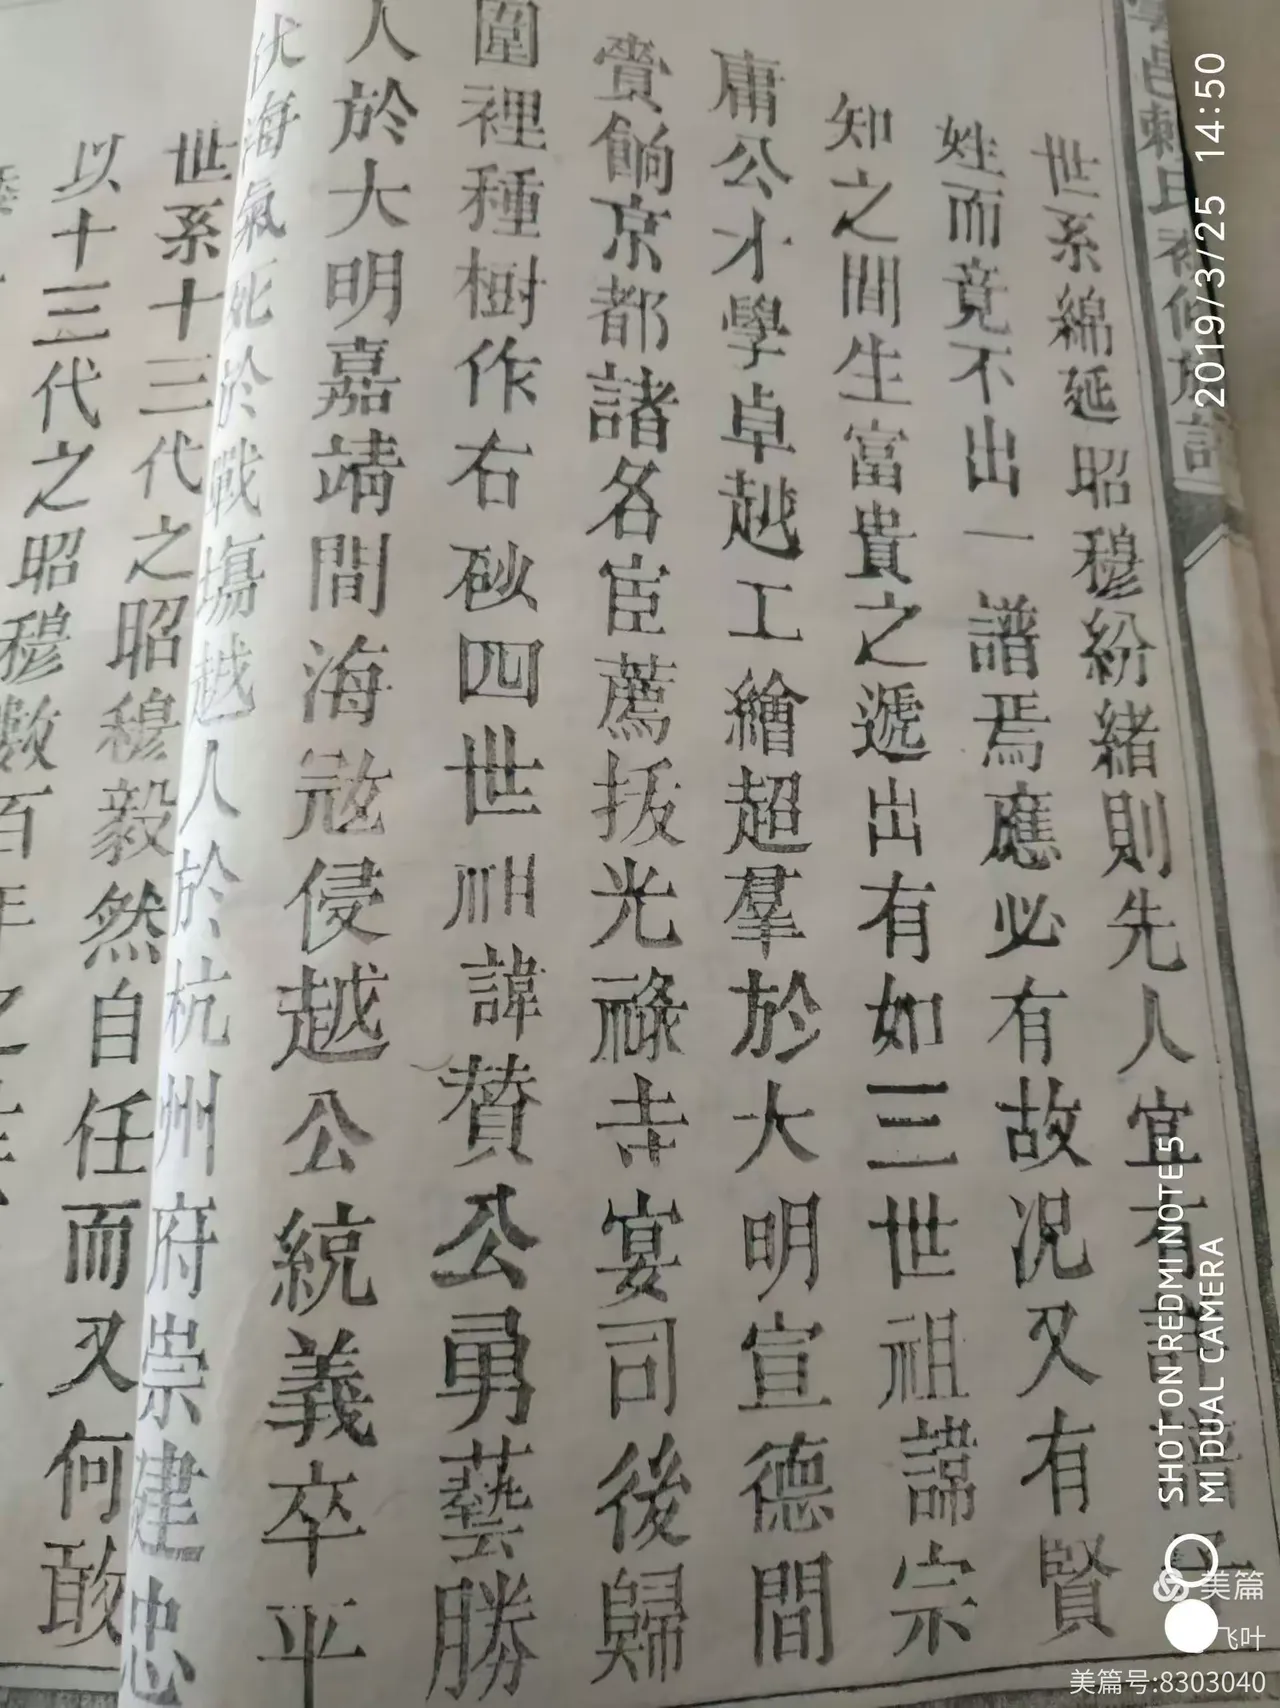 世系綿延昭穆紛緒則先人宜有譜
姓而竟不出一譜焉應必有故况又有賢
知之間生富貴之遞出有如三世祖諱宗
庸公才學卓越工繪超羣於大明宣德間
賫餉京都諸名宦薦拔光祿寺宴司後歸
圍裡種樹作右砂四世祖諱賛公勇藝勝
人於大明嘉靖間海冦侵越公統義卒平
伏海氣死於戰塲越人於杭州府崇建忠
世系十三代之昭穆毅然自任而又何敢
以十三代之昭穆數百年之
2019/3/25 14:50
SHOT ON REDMI NOTE 5
MI DUAL CAMERA
美篇
飞叶
美篇号:8303040